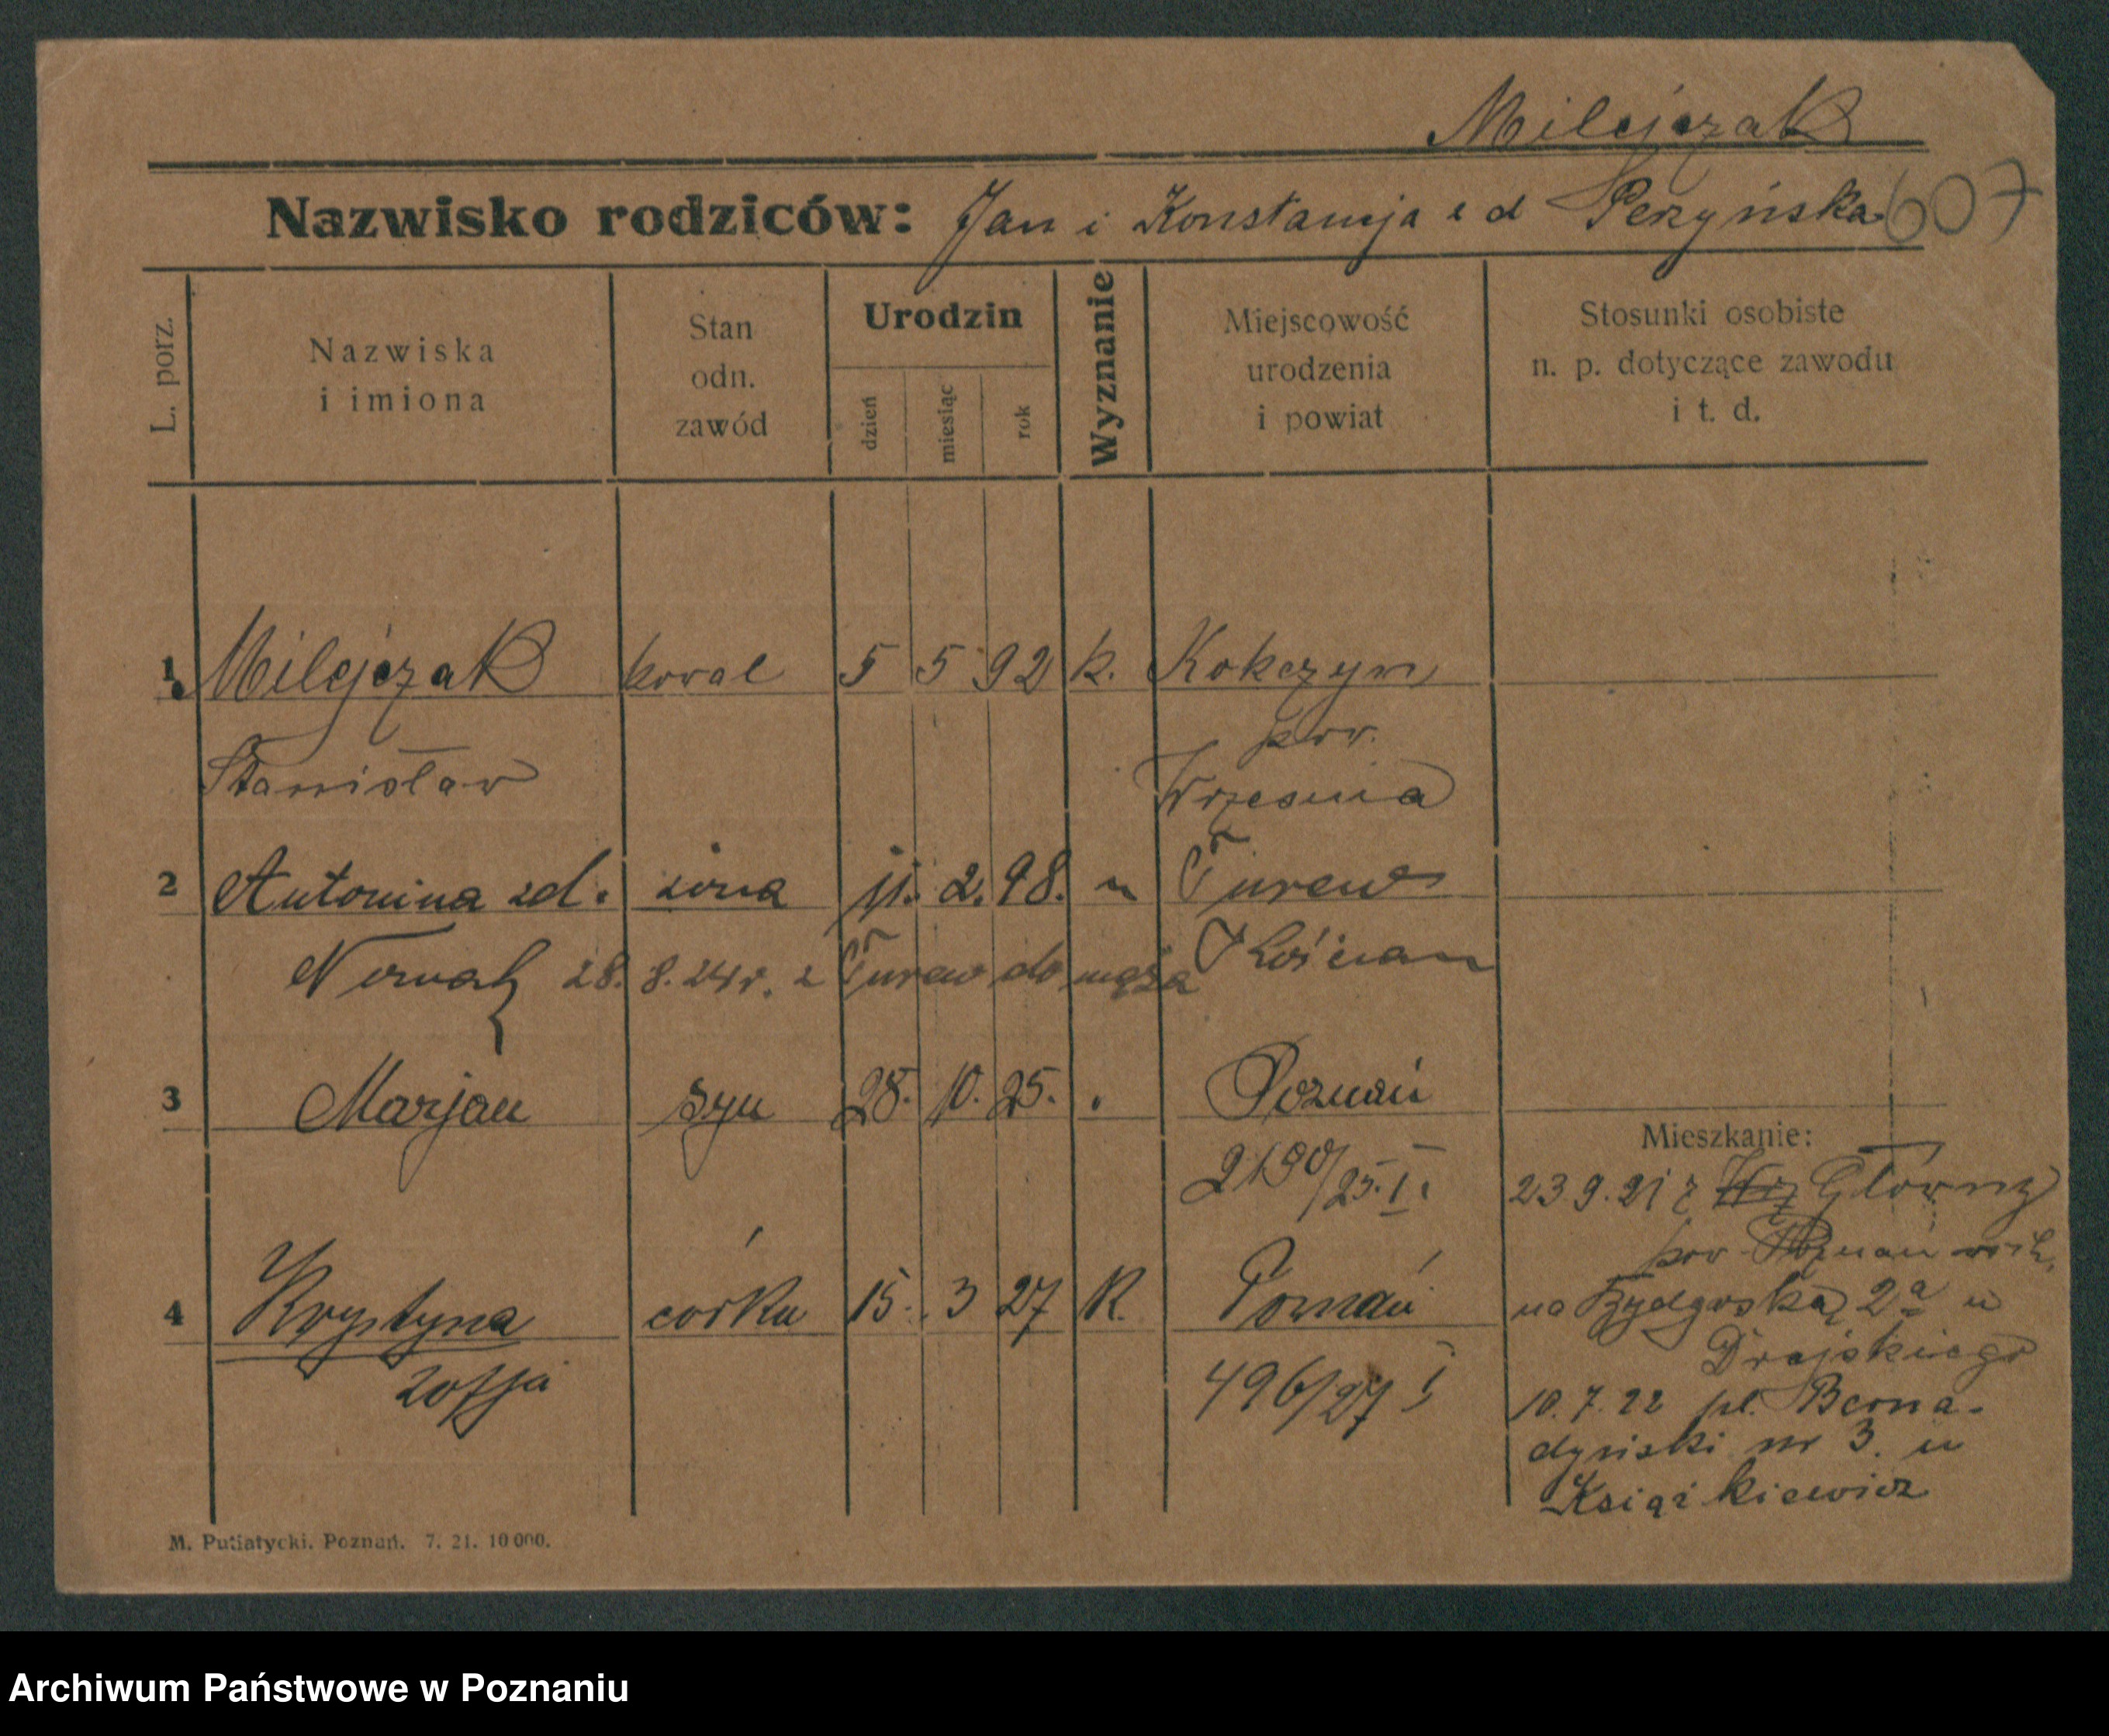 Milejczak
Nazwisko rodziców: Jan i Konstancja z d Perzyńska 607
L. porz.
Nazwiska
i imiona
Stan
odn.
zawód
Urodzin
dzień
miesiąc
rok
Wyznanie
Miejscowość
urodzenia
i powiat
Stosunki osobiste
n. p. dotyczące zawodu
i t. d.
1 Milejczak kowal 5 5 92 k. Kokczyn
pow.
Stanisław Wrzesnia
2 Antonina zd. żona 11. 2. 98. " Turew
Nowak 28. 8. 24 r. z Turew do męża Kościan
3 Marjan syn 28. 10. 25. . Poznań
2190/25. I.
4 Krystyna córka 15. 3 27 K. Poznań
Zofja 496/27 I
Mieszkanie:
23 9. 21 z Główny
pow Poznań
na Bydgoską 2a u
Drajskiego
10. 7. 22 pl. Berna-
dyński nr 3. u
Książkiewicz
M. Putiatycki. Poznań. 7. 21. 10 000.
Archiwum Państwowe w Poznaniu